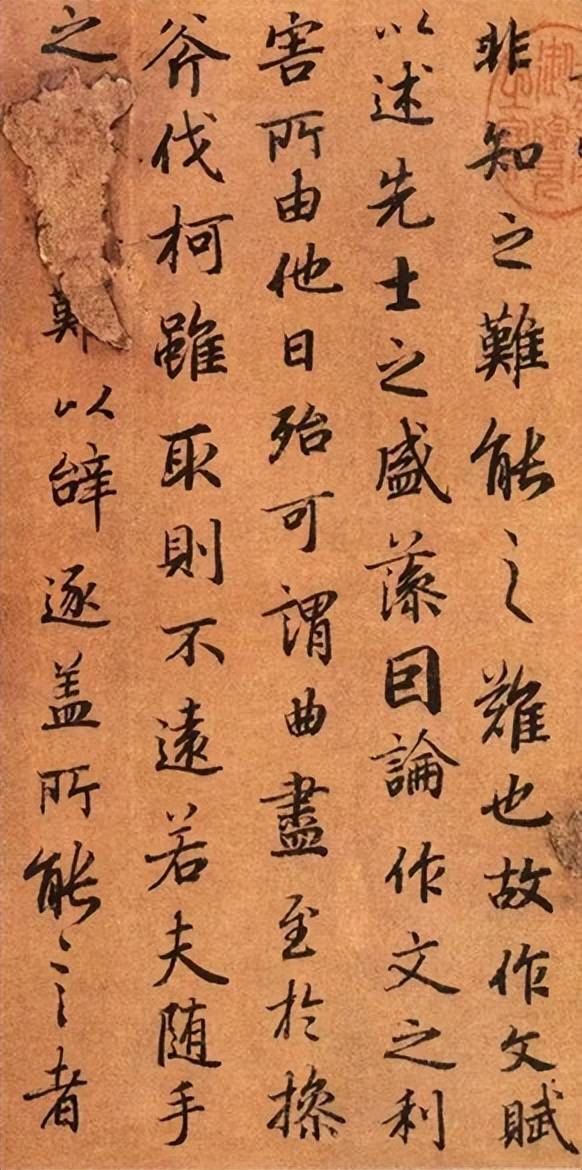 非知之難能之難也故作文賦
以述先士之盛藻因論作文之利
害所由他日殆可謂曲盡至於操
斧伐柯雖取則不遠若夫随手
之難以辝逐盖所能言之者